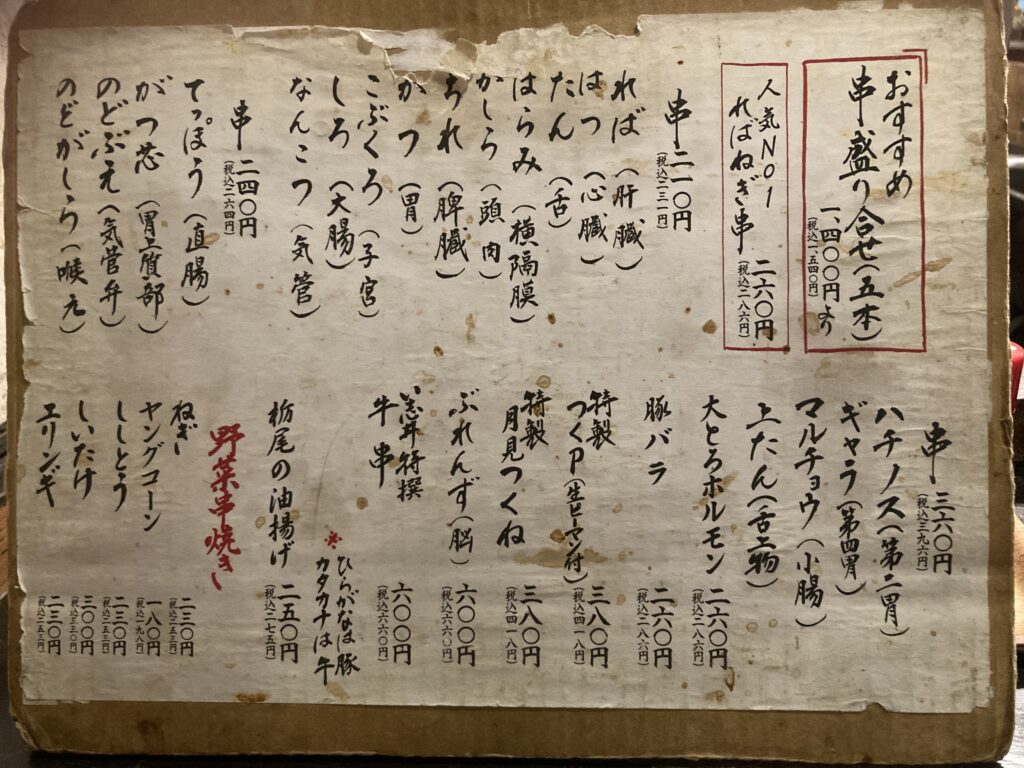 おすすめ
串盛り合せ(五本)
一、四〇〇円より
(税込一、五四〇円)
人気No1
ればねぎ串
二六〇円
(税込二八六円)
串 二一〇円
(税込二三一円)
れば(肝臓)
はつ(心臓)
たん(舌)
はらみ(横隔膜)
かしら(頭肉)
ちれ(脾臓)
がつ(胃)
こぶくろ(子宮)
しろ(大腸)
なんこつ(気管)
串 二四〇円
(税込二六四円)
てっぽう(直腸)
がつ芯(胃上質部)
のどぶえ(気管弁)
のどがしら(喉元)
串 三六〇円
(税込三九六円)
ハチノス(第二胃)
ギャラ(第四胃)
マルチョウ(小腸)
上たん(舌上物)
大とろホルモン 二六〇円
(税込二八六円)
豚バラ 二六〇円
(税込二八六円)
特製
つくP(生ピーマン付) 三八〇円
(税込四一八円)
特製
月見つくね 三八〇円
(税込四一八円)
ぶれんず(脳) 六〇〇円
(税込六六〇円)
特撰
牛串 六〇〇円
(税込六六〇円)
※ひらがなは豚
カタカナは牛
栃尾の油揚げ 二五〇円
(税込二七五円)
野菜串焼き
ねぎ 二三〇円
(税込二五三円)
ヤングコーン 一八〇円
(税込一九八円)
ししとう 二三〇円
(税込二五三円)
しいたけ 三〇〇円
(税込三三〇円)
エリンギ 二三〇円
(税込二五三円)